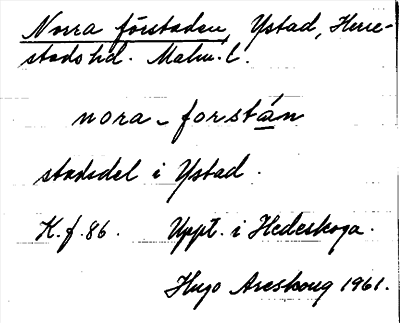 Norra förstaden, Ystad, Herre-
stads hd. Malm. l.
nora - forstán
stadsdel i Ystad.
K. f. 86. Uppt. i Hedeskoga.
Hugo Areskoug 1961.